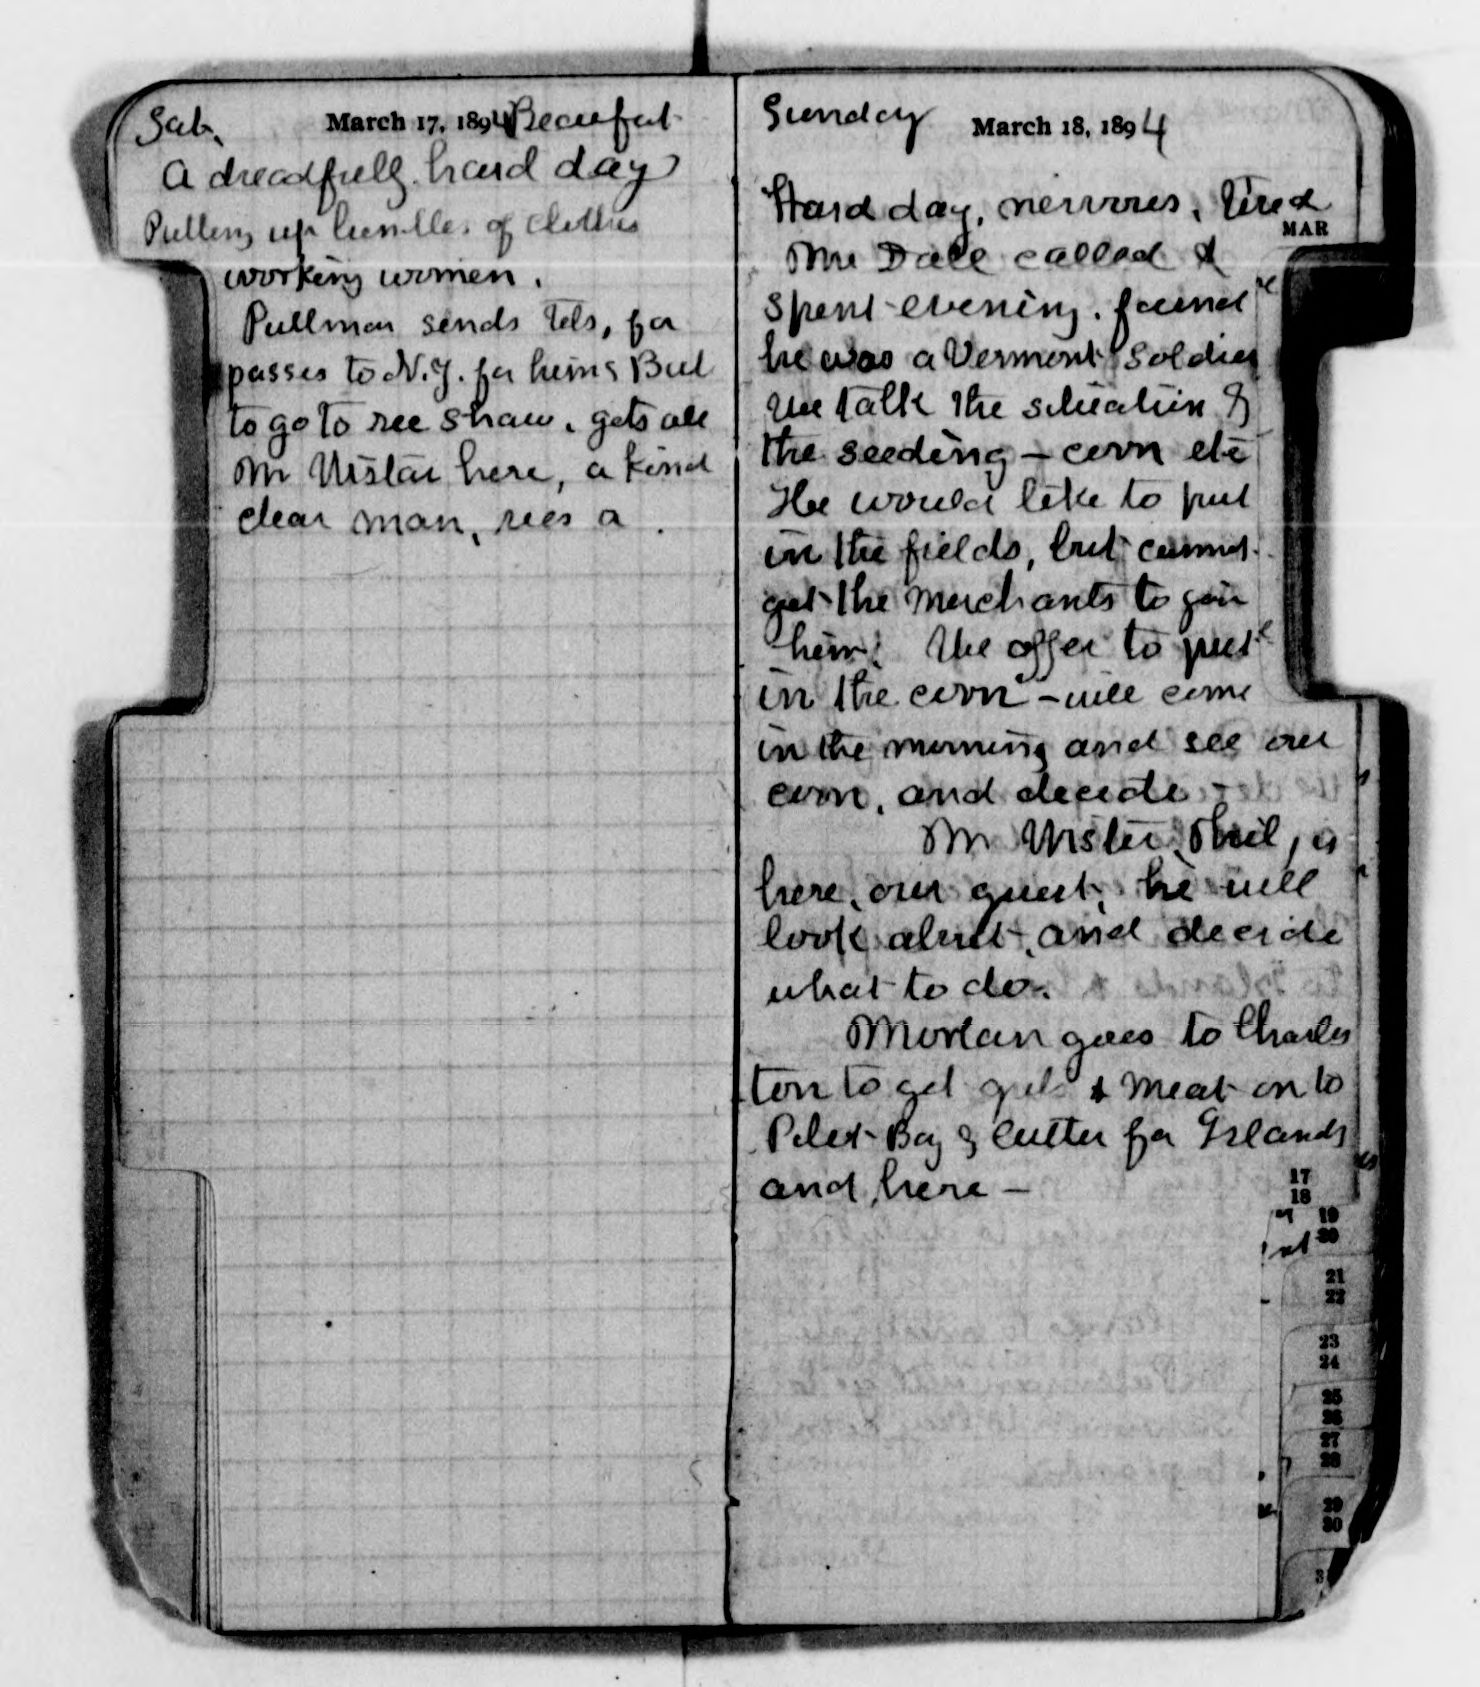 Sat. March 17, 1894 Beaufort
A dreadfully hard day
Putting up bundles of clothes
working women.
Pullman sends tels, for
passes to N.Y. for himself But
to go to see Shaw. gets all
Mr Wistar here, a kind
clear man, sees a .
Sunday March 18, 1894
Hard day, nervous, tired
MAR
Mr Dale called &
spent evening. found
he was a Vermont Soldier
We talk the situation of
the seeding – corn etc
He would like to put
in the fields, but cannot
get the merchants to join
him. We offer to put
in the corn – will come
in the morning and see our
corn, and decide –
Mr Wister, Phil, is
here, our guest, he will
look about, and decide
what to do.
Morlan goes to Charles
ton to get & meat on to
Pilot Boy & Cutter for Islands
and here –
17
18
19
20
21
22
23
24
25
26
27
28
29
30